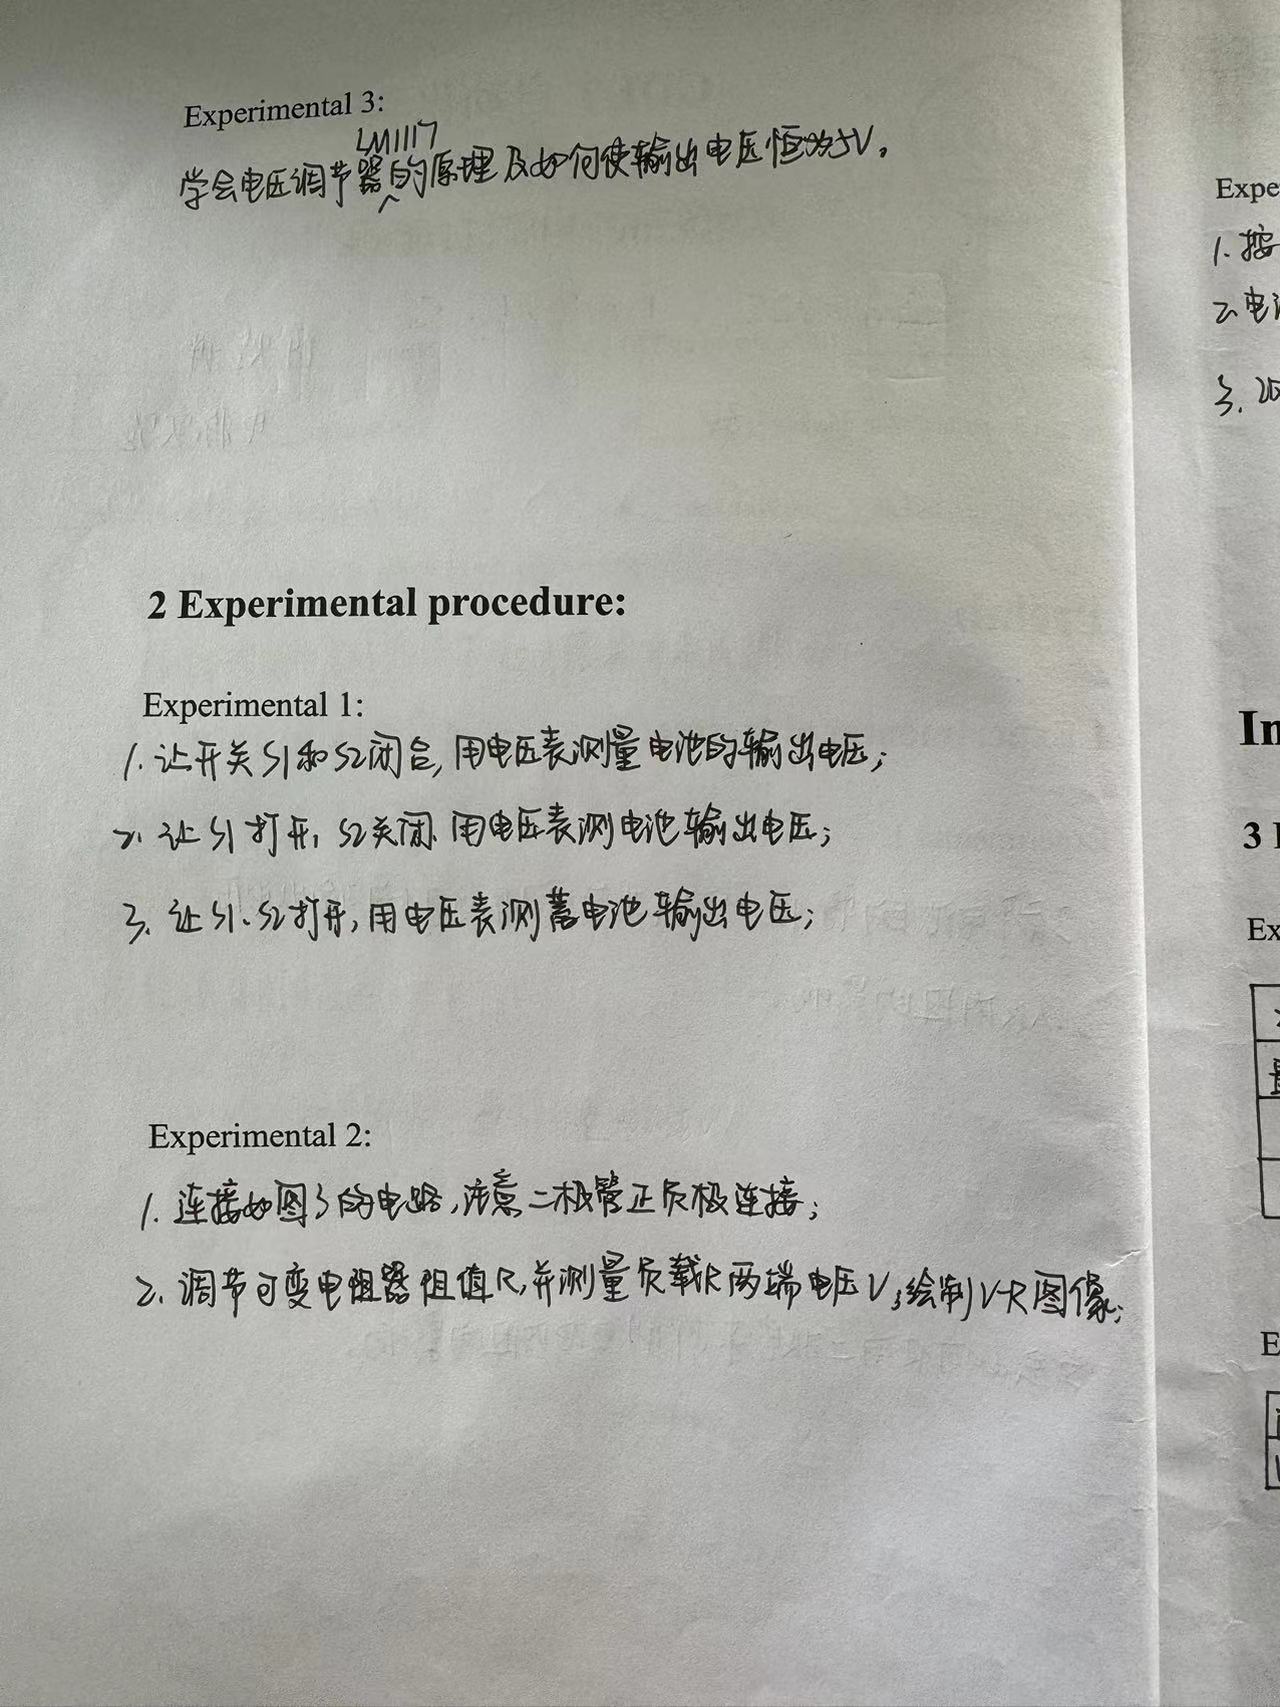 Experimental 3:
学会电压调节器LM1117的原理及如何使输出电压恒为5V。
2 Experimental procedure:
Experimental 1:
1. 让开关S1和S2闭合,用电压表测量电池的输出电压;
2. 让S1打开, S2关闭 用电压表测电池输出电压;
3. 让S1、S2打开,用电压表测蓄电池输出电压;
Experimental 2:
1. 连接如图3的电路,注意二极管正负极连接;
2. 调节可变电阻器阻值R,并测量负载R两端电压V,绘制V-R图像;
Expe
1. 按
2. 电
3.
In
3
Ex
E